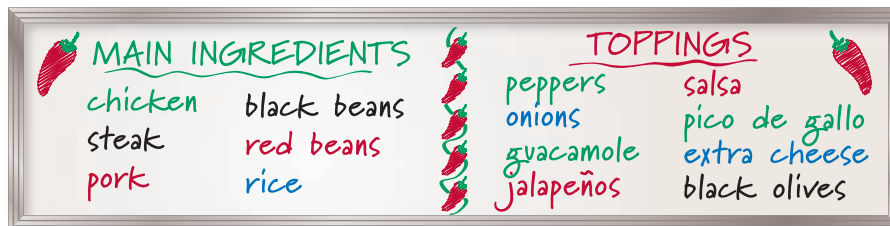 MAIN INGREDIENTS
chicken
steak
pork
black beans
red beans
rice
TOPPINGS
peppers
onions
guacamole
jalapeños
salsa
pico de gallo
extra cheese
black olives